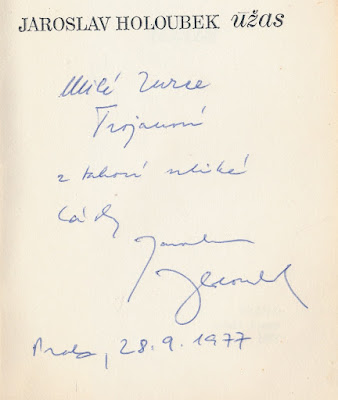 JAROSLAV HOLOUBEK úžas
Milé Zuzce
Trojanové
z takové veliké
lásky
Jaroslav
Holoubek
Praha, 28.9.1977